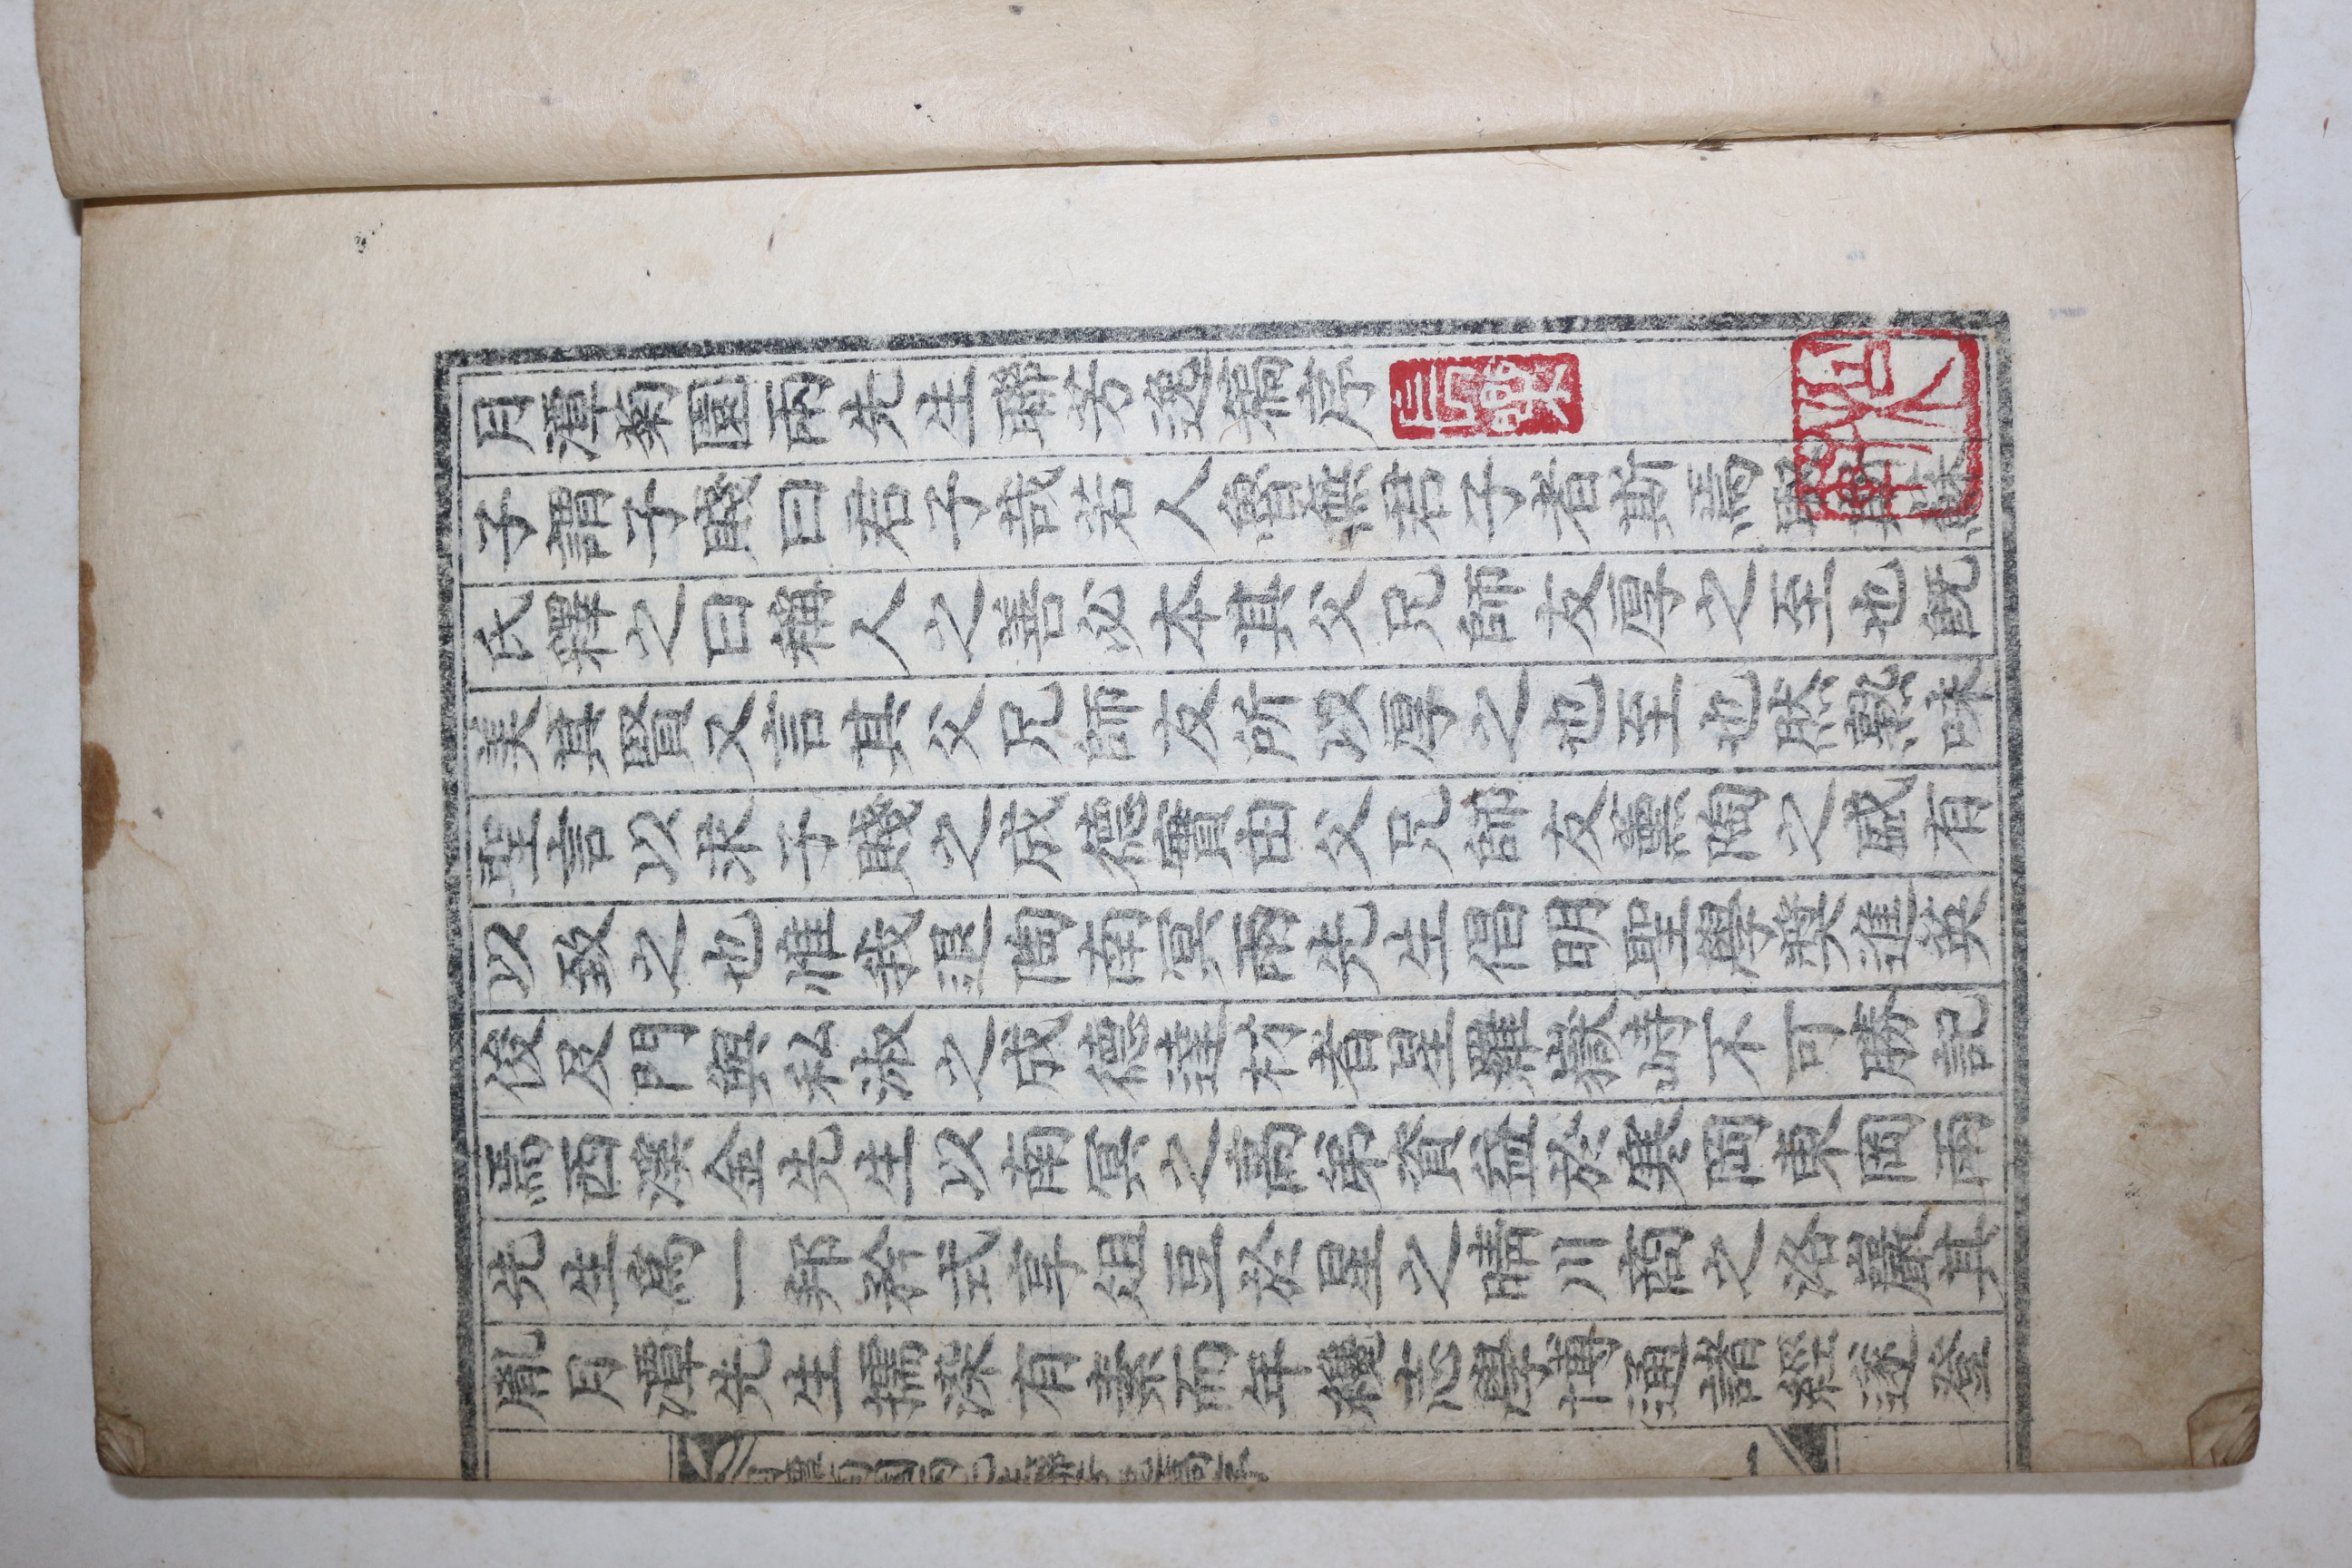 月潭菊園兩先生聯芳逸稿序
子謂子賤曰君子哉若人魯無君子者斯焉取斯蘇
氏釋之曰稱人之善必本其父兄師友厚之至也旣
美其賢又言其父兄師友所以厚之也至也然熟味
聖言以求子賤之成德實由父兄師友薰陶之盛有
以致之也惟我退陶南冥兩先生倡明聖學奬進英
俊及門與私淑之成德達材者星羅嶽峙不可勝記
焉西溪金先生以南冥之高弟資益於寒岡東岡兩
先生爲一邦矜式享俎豆於星之晴川商之洛巖其
胤月潭先生擩染有素而年纔志學博通諸經遂登
一